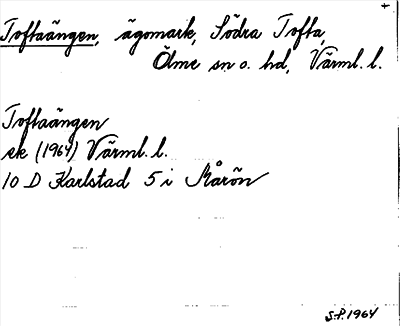 +
Toftaängen, ägomark, Södra Tofta,
Ölme sn o. hd, Värml. l.
Toftaängen
ek (1964) Värml. l.
10 D Karlstad 5 i Mårön
S.P. 1964